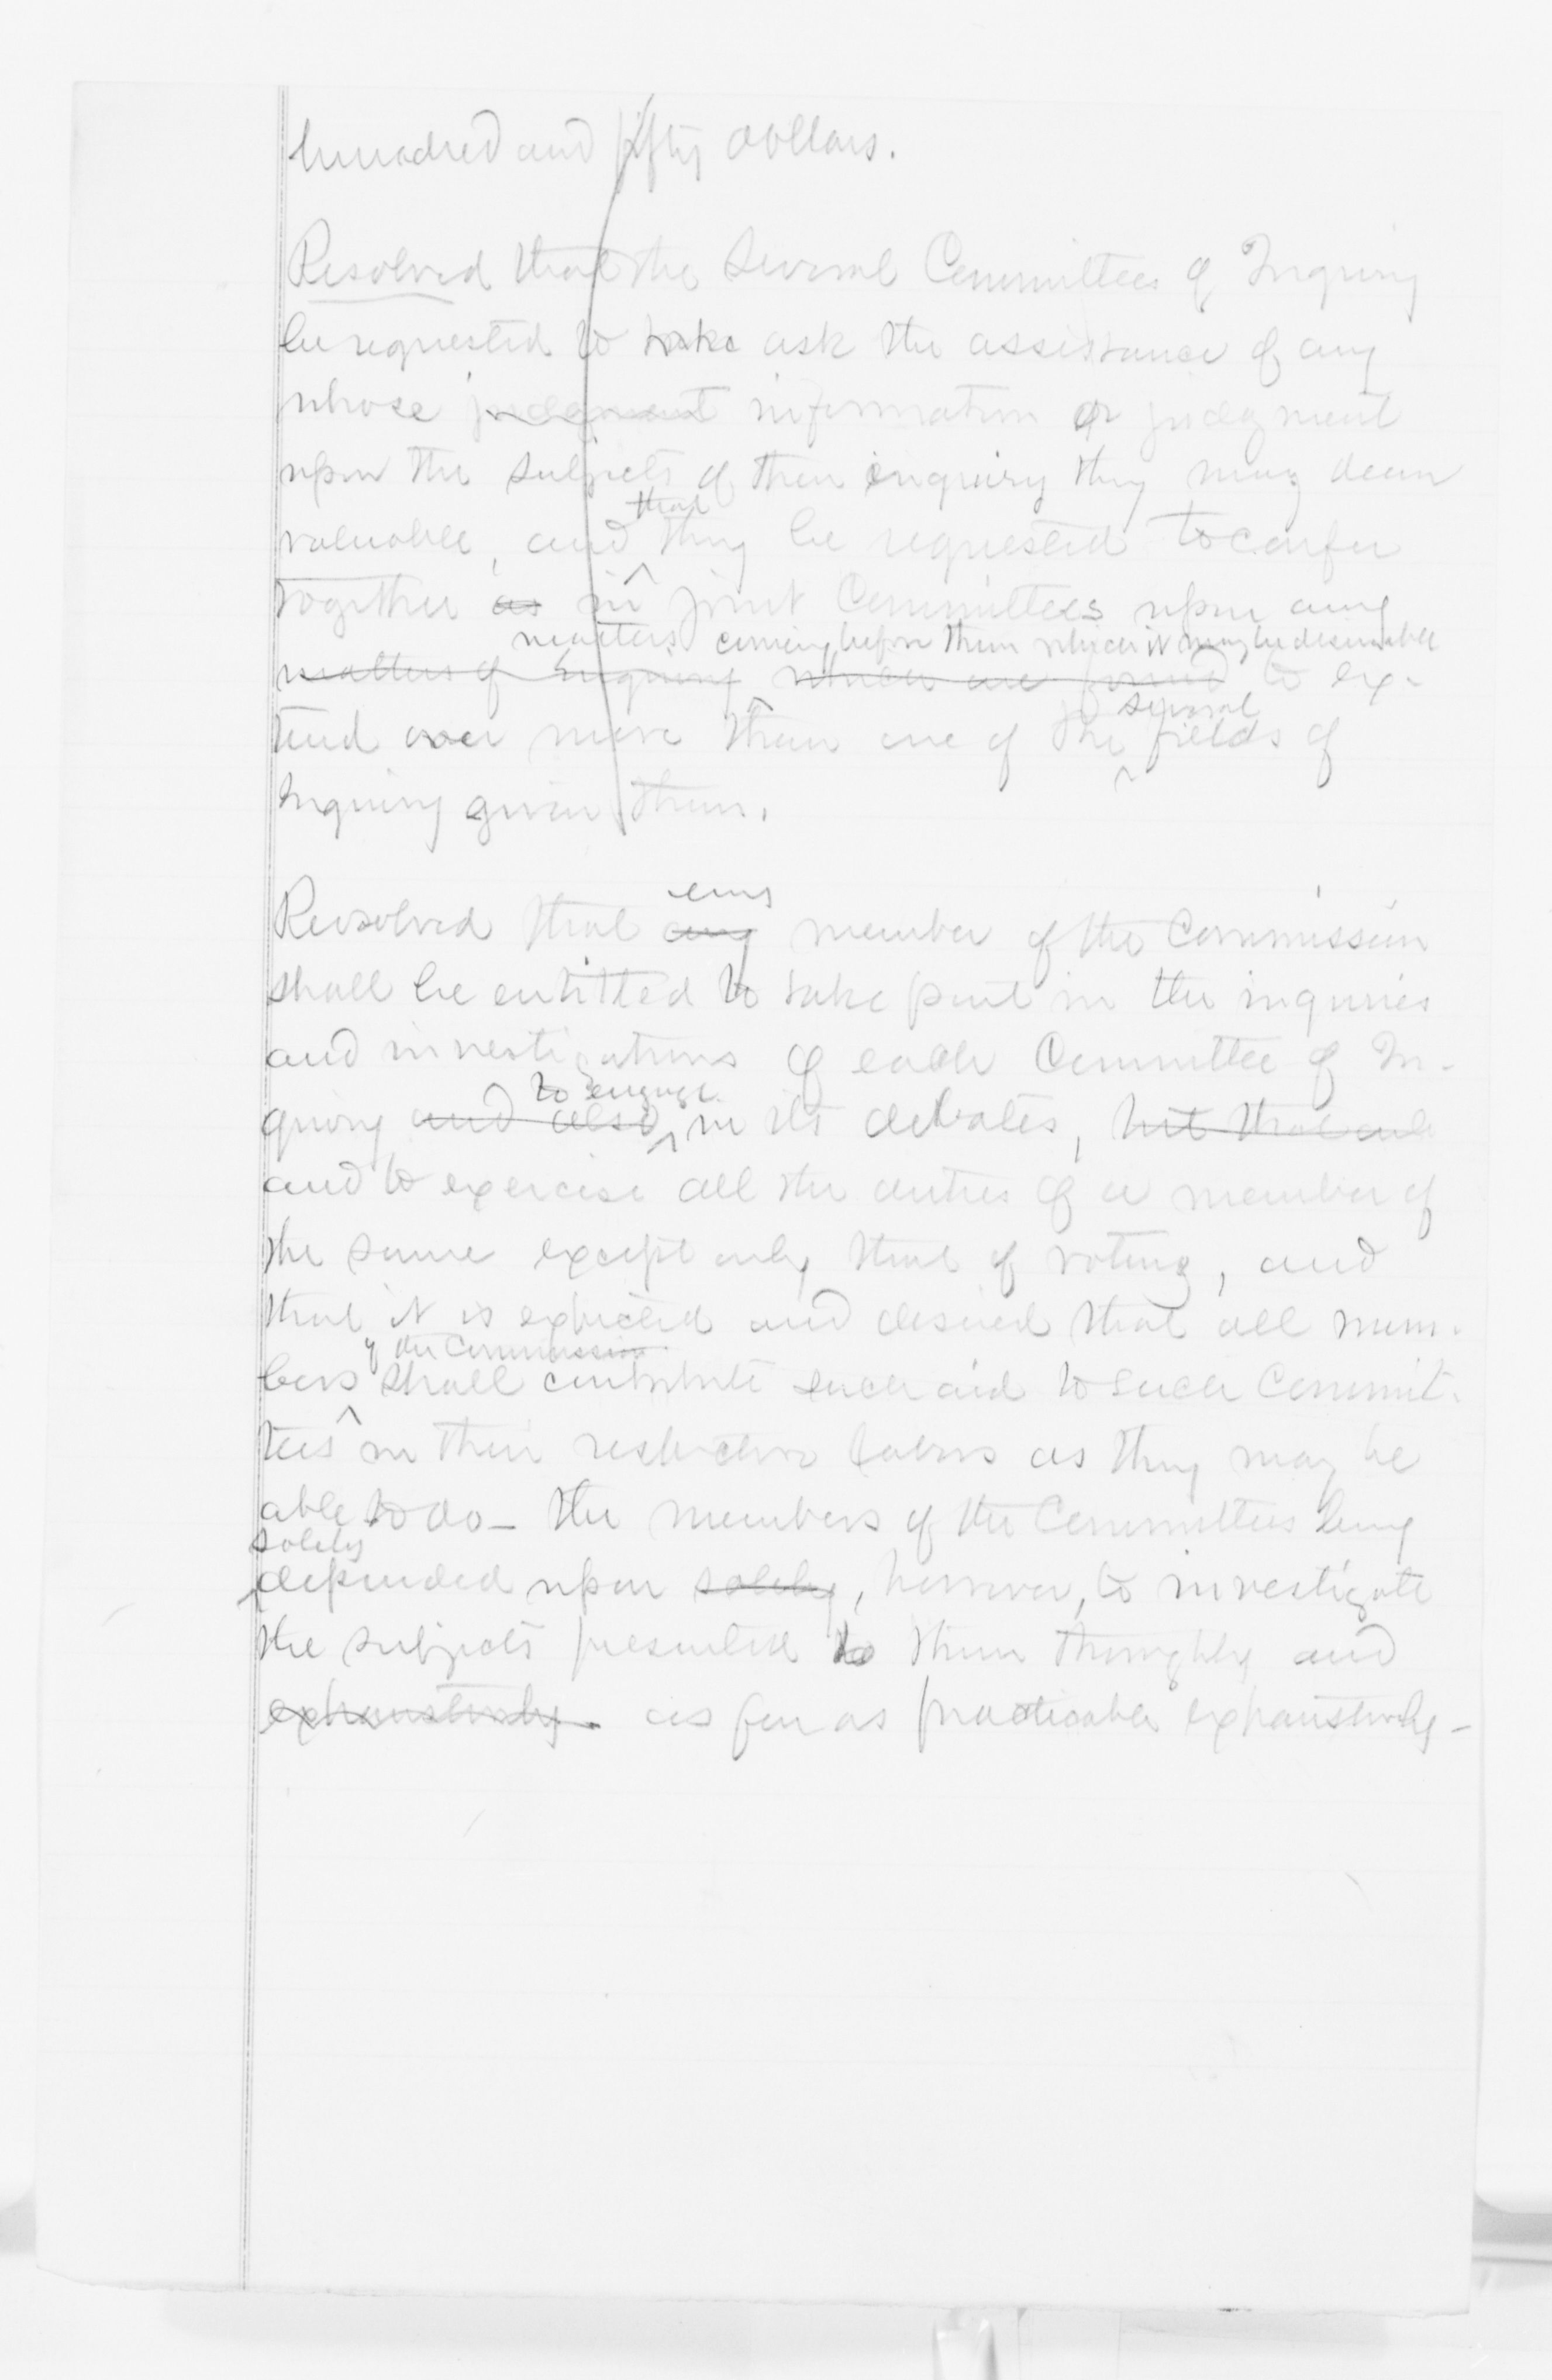 hundred and fifty dollars.
Resolved that the several Committees of Inquiry
be requested to take ask the assistance of any
whose judgment information or judgment
upon the subjects of their inquiry they may deem
that
valuable, and they be requested to confer
together as in joint Committees upon any
matters coming before them which it may be desirable
matters of Inquiry which are found to ex-
several
tend over more than one of the fields of
Inquiry given them.
any
Resolved that any member of the Commission
shall be entitled to take part in the inquiries
and investigations of each Committee of In-
to engage
quiry and also in its debates, but that
and to exercise all the duties of a member of
the same except only that of voting, and
that it is expected and desired that all mem-
of the Commission
bers shall contribute such aid to such Commit-
tees in their respective labors as they may be
able to do - the members of the Committees being
solely
depended upon solely, however, to investigate
the subjects presented to them thoroughly and
exhaustively. as far as practicable exhaustively -